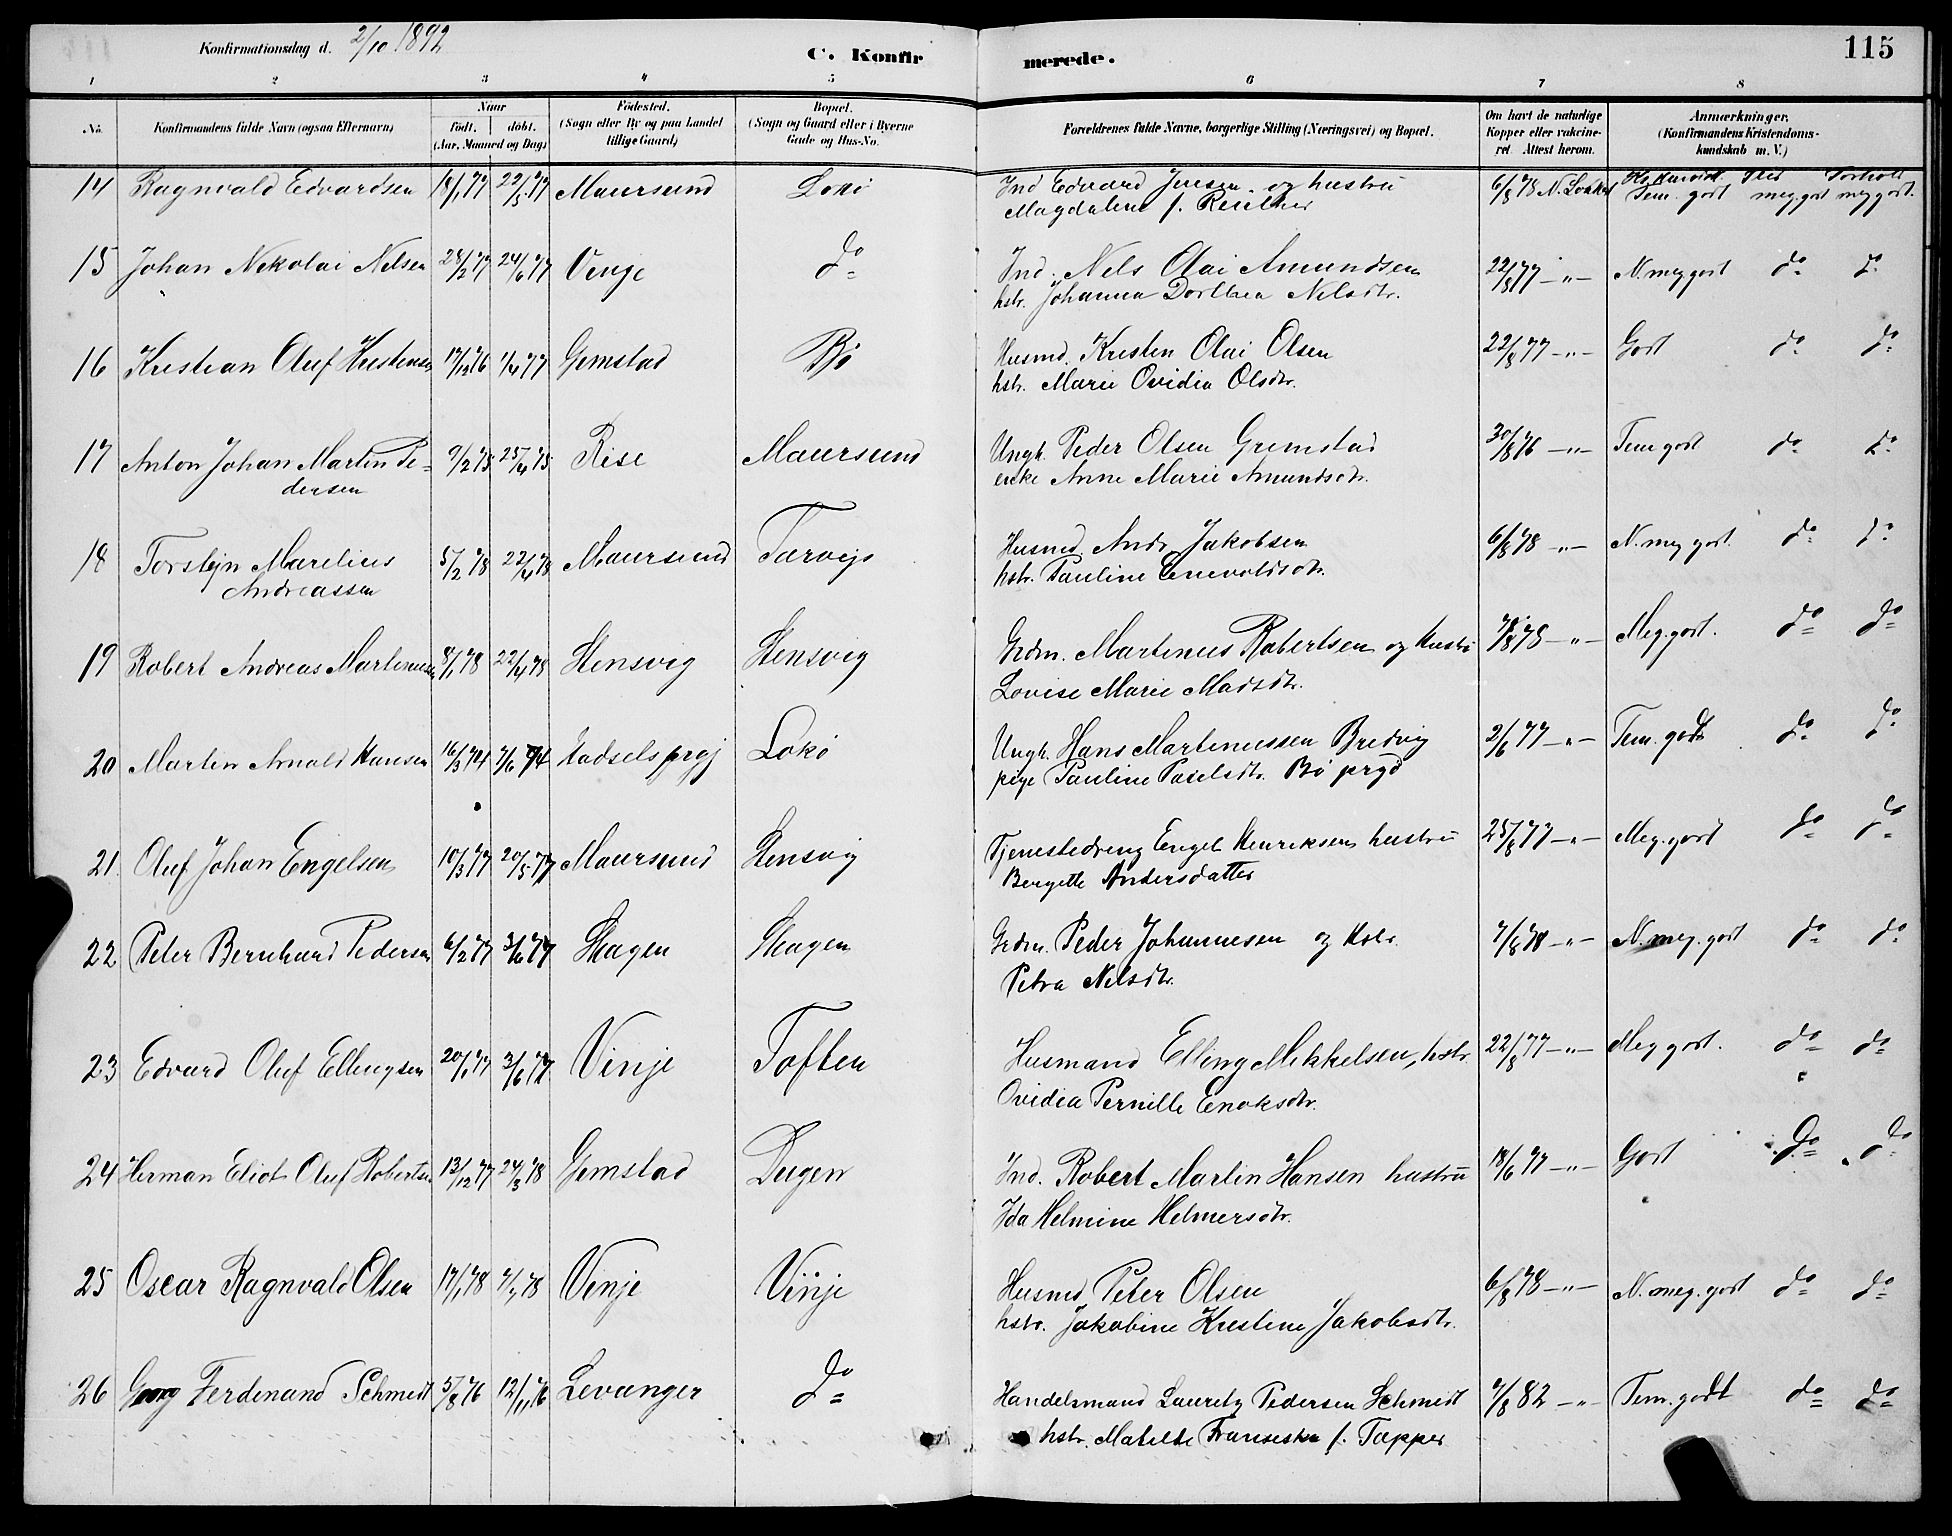 Konfirmationsdag d. 2/10 1892
C. Konfirmerede.
115
1 2 3 4 5 6 7 8
No. Konfirmandens fulde Navn (ogsaa Efternavn) Naar født. døbt. (Aar, Maaned og Dag) Fødested. (Sogn eller By og paa Landet tillige Gaard) Bopæl. (Sogn og Gaard eller i Byerne Gade og Hus-No. Forældrenes fulde Navne, borgerlige Stilling (Næringsvei) og Bopæl. Om havt de naturlige Kopper eller vakcineret Attest herom. Anmærkninger. (Konfirmandens Kristendomskundskab m. V.)
14 Ragnvald Edvardsen 18/1 77 22/5 77 Maursund Lokø Ind Edvard Jensen og hustru 6/8 78 N. Lockert Tem. godt meg. godt meg godt.
Magdalene f.
15 Johan Nikolai Nelsen 28/2 77 24/6 77 Vinge do Ind. Nels Olai Amundsen 22/8 77 —"— N. meg godt do do
hstr. Johanna Dorthea Nelsdtr.
16 Kristian Oluf Kristensen 17/12 76 1/4 77 Gimstad Bjø Husmd. Kristen Olai Olsen 22/8 77 —"— Godt do do
hstr. Marie Ovidia Olsdtr.
17 Anton Johan Martin Pe- 9/2 75 25/4 75 Rise Maursund Ungk. Peder Olsen Grimstad 30/8 76 —"— Tem godt do do
dersen enke Anne Marie Amundsdtr.
18 Torstejn Marelius 5/2 78 22/4 78 Maursund Tarvejs Husmd. Andr. Jakobsen 6/8 78 —"— N. meg godt. do do
Andreassen hstr. Pauline Enevoldsdtr.
19 Robert Andreas Martinusen 8/1 78 22/4 78 Stensvig Stensvig Grdm. Martinus Robertsen og hustru 7/8 78 —"— Meg. godt. do do
Lovise Marie Madsdtr.
20 Martin Arnold Hansen 16/3 74 7/6 74 Hadsels prgj Lokø Ungk. Hans Martinussen Bredvig 2/6 77 —"— Tem. godt do do
pige Pauline Paulsdtr. Bø prgd
21. Oluf Johan Engelsen 10/3 77 20/5 77 Maursund Stensvig Tjenestedreng Engel Henriksen hustru 25/8 77 —"— Meg. godt do do
Bergitte Andersdatter
22 Peter Bernhard Pedersen 6/2 77 3/6 77 Skagen Skagen Grdm. Peder Johannesen og hstr. 7/8 78 —"— N. meg. godt do do
Petra Nelsdtr.
23 Edvard Oluf Ellingsen 20/1 77 3/6 77 Vinje Toften Husmand Elling Mikkelsen, hstr. 22/8 77 —"— Meg godt. do do
Ovidia Pernille Enoksdtr.
24 Herman Eliot Oluf Robertsen 13/12 77 24/3 78 Gimstad Ind. Robert Martin Hansen hustru 18/6 77 —"— Godt do do
Ida Helmine Helmersdtr.
25 Oscar Ragnvald Olsen 17/1 78 78 Vinje Vinje Husmd Peter Olsen 6/8 78 —"— N. meg. godt do do
hstr. Jakobine Kristine Jakobsdtr.
26 Georg Ferdinand Schmidt 5/8 76 12/11 76 Levanger do Handelsmand Lauretz Pedersen Schmidt 7/8 82 —"— Tem. godt do do
hstr. Matelde Franseska f. Tapper